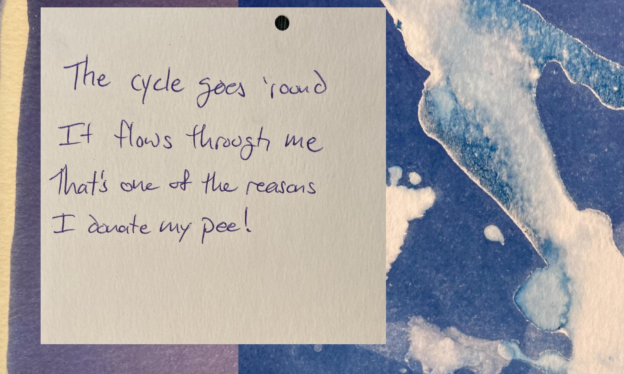 The cycle goes 'round
It flows through me
That's one of the reasons
I donate my pee!